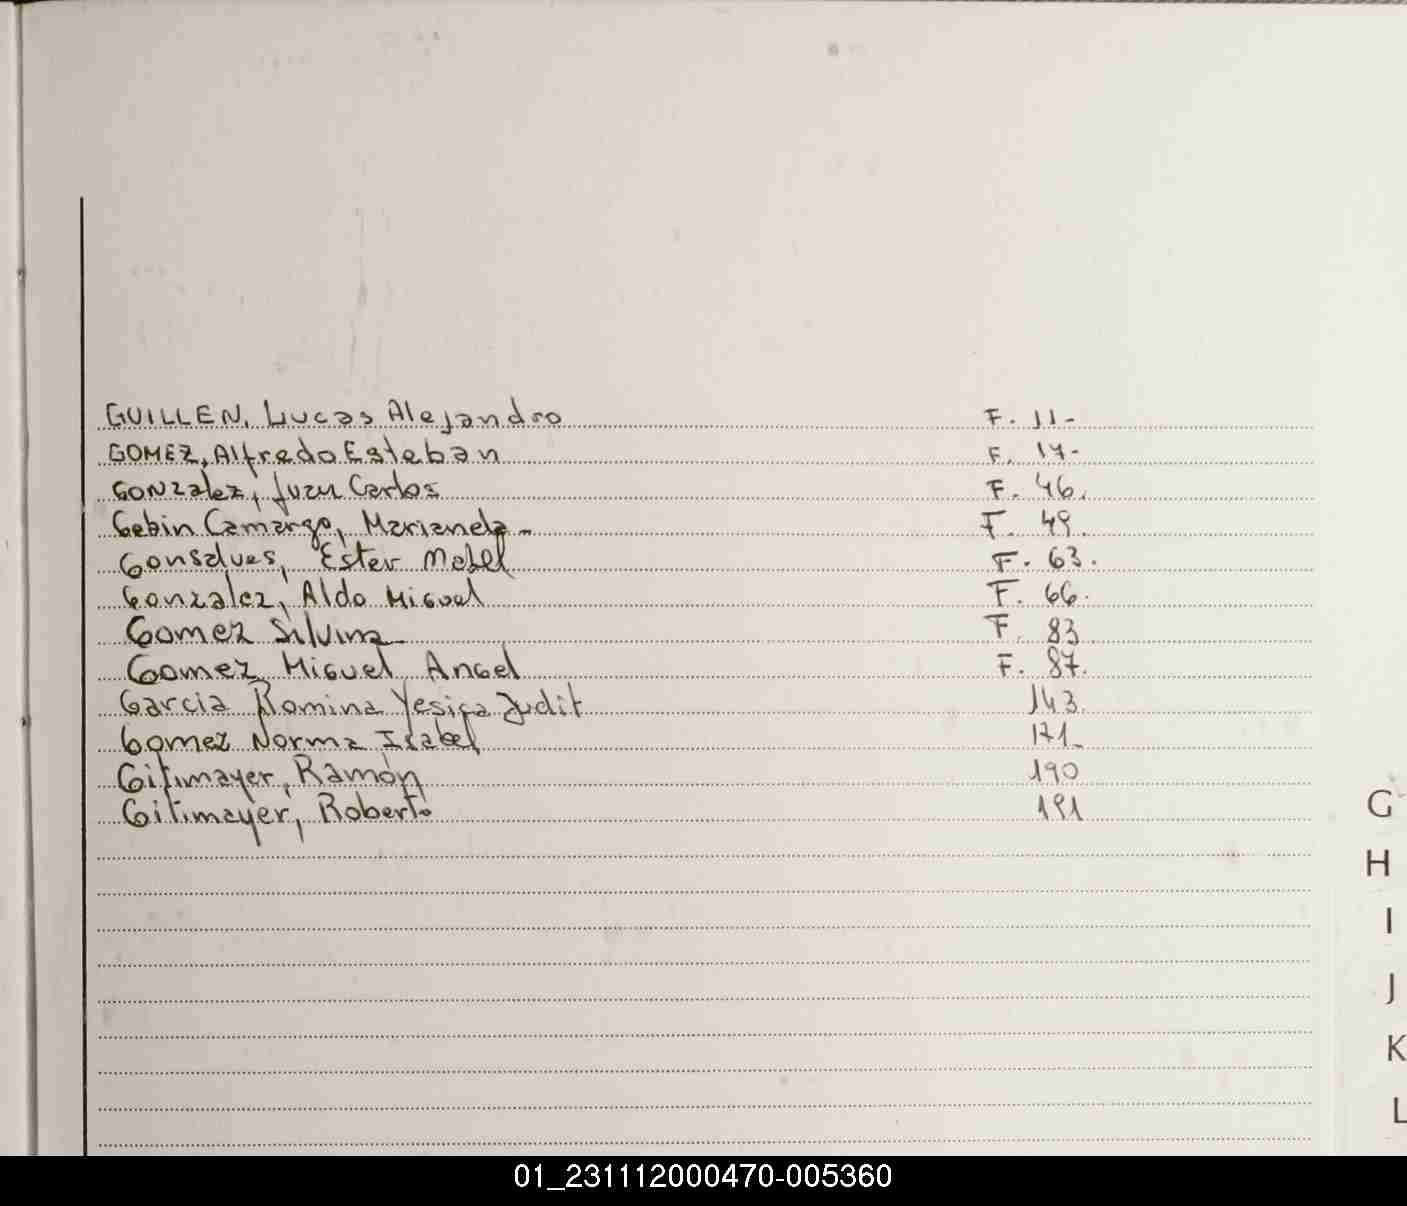 GUILLEN, Lucas Alejandro F. 11-
GOMEZ, Alfredo Esteban F. 17-
GONZalez, Juan Carlos F. 46.
Gebin Camargo, Marianela - F. 49.
Gonsalves, Ester Mabel F. 63.
Gonzalez, Aldo Miguel F. 66.
Gomez Silvina F. 83
Gomez Miguel Angel F. 87.
Garcia Romina Yesica Judit 143.
Gomez Norma Isabel 171-
Gitimayer, Ramón 190
Gitimayer, Roberto 191
G
H
I
J
K
L
01_231112000470-005360